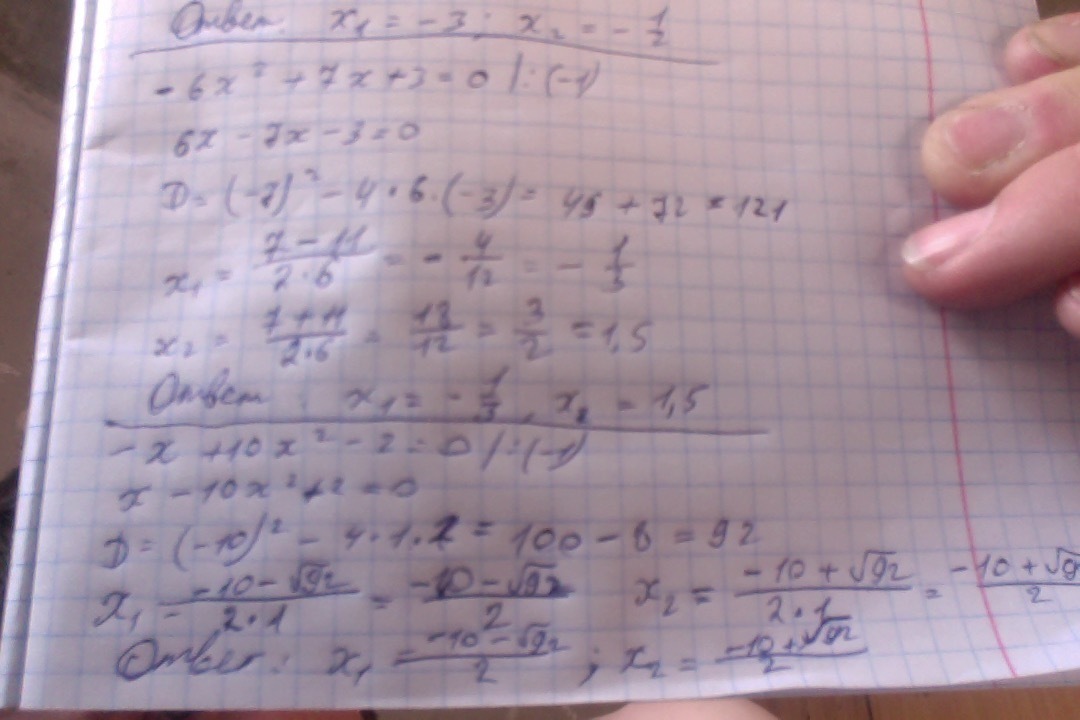 Ответ: x₁ = -3; x₂ = -1/2
-6x² + 7x + 3 = 0 | : (-1)
6x - 7x - 3 = 0
D = (-7)² - 4 · 6 · (-3) = 49 + 72 = 121
x₁ = (7 - 11)/(2 · 6) = -4/12 = -1/3
x₂ = (7 + 11)/(2 · 6) = 18/12 = 3/2 = 1,5
Ответ: x₁ = -1/3, x₂ = 1,5
-x + 10x² - 2 = 0 | : (-1)
x - 10x² + 2 = 0
D = (-10)² - 4 · 1 · 2 = 100 - 8 = 92
x₁ = (-10 - √92)/(2 · 1) = (-10 - √92)/2 x₂ = (-10 + √92)/(2 · 1) = (-10 + √9)/2
Ответ: x₁ = (-10 - √92)/2 ; x₂ = (-10 + √92)/2